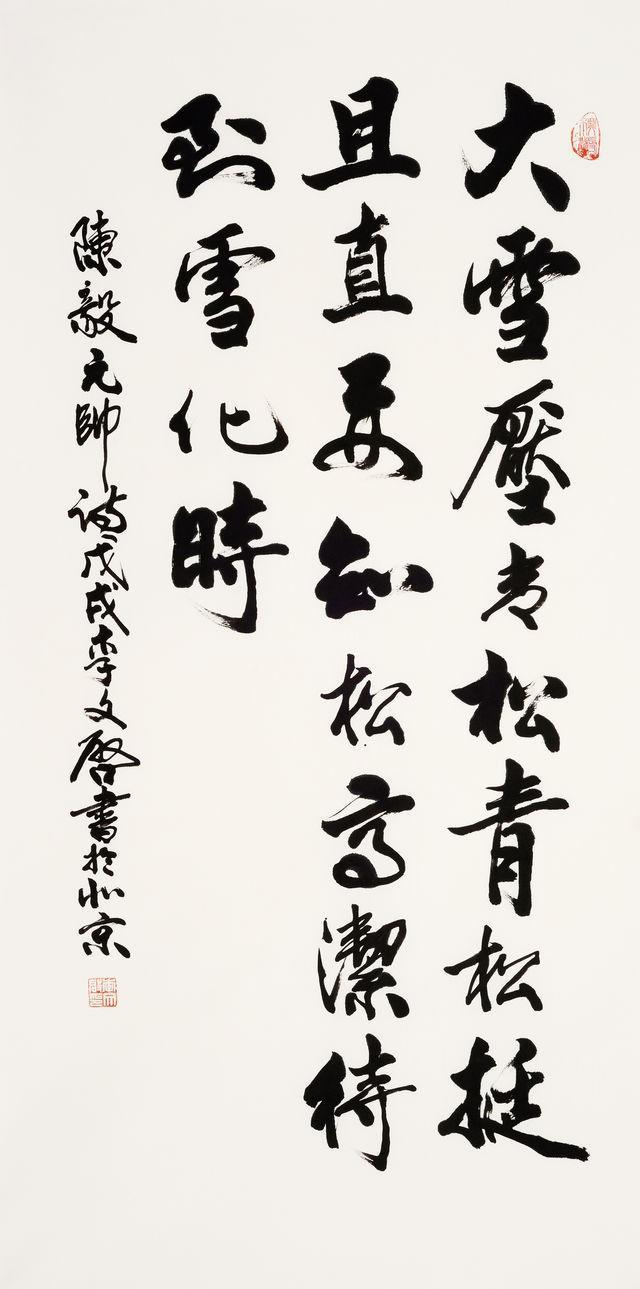 大雪壓青松青松挺
且直要知松高潔待
到雪化時
陳毅元帥詩戊戌李文啓書於北京